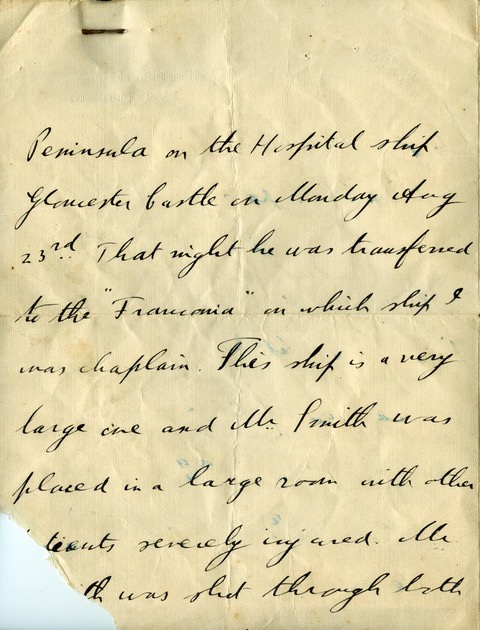 Peninsula on the Hospital ship
Gloucester Castle on Monday Aug
23rd. That night he was transferred
to the "Franconia" on which ship I
was chaplain. This ship is a very
large one and Mr Smith was
placed in a large room with other
tients severely injured. Mr
th was shot through both